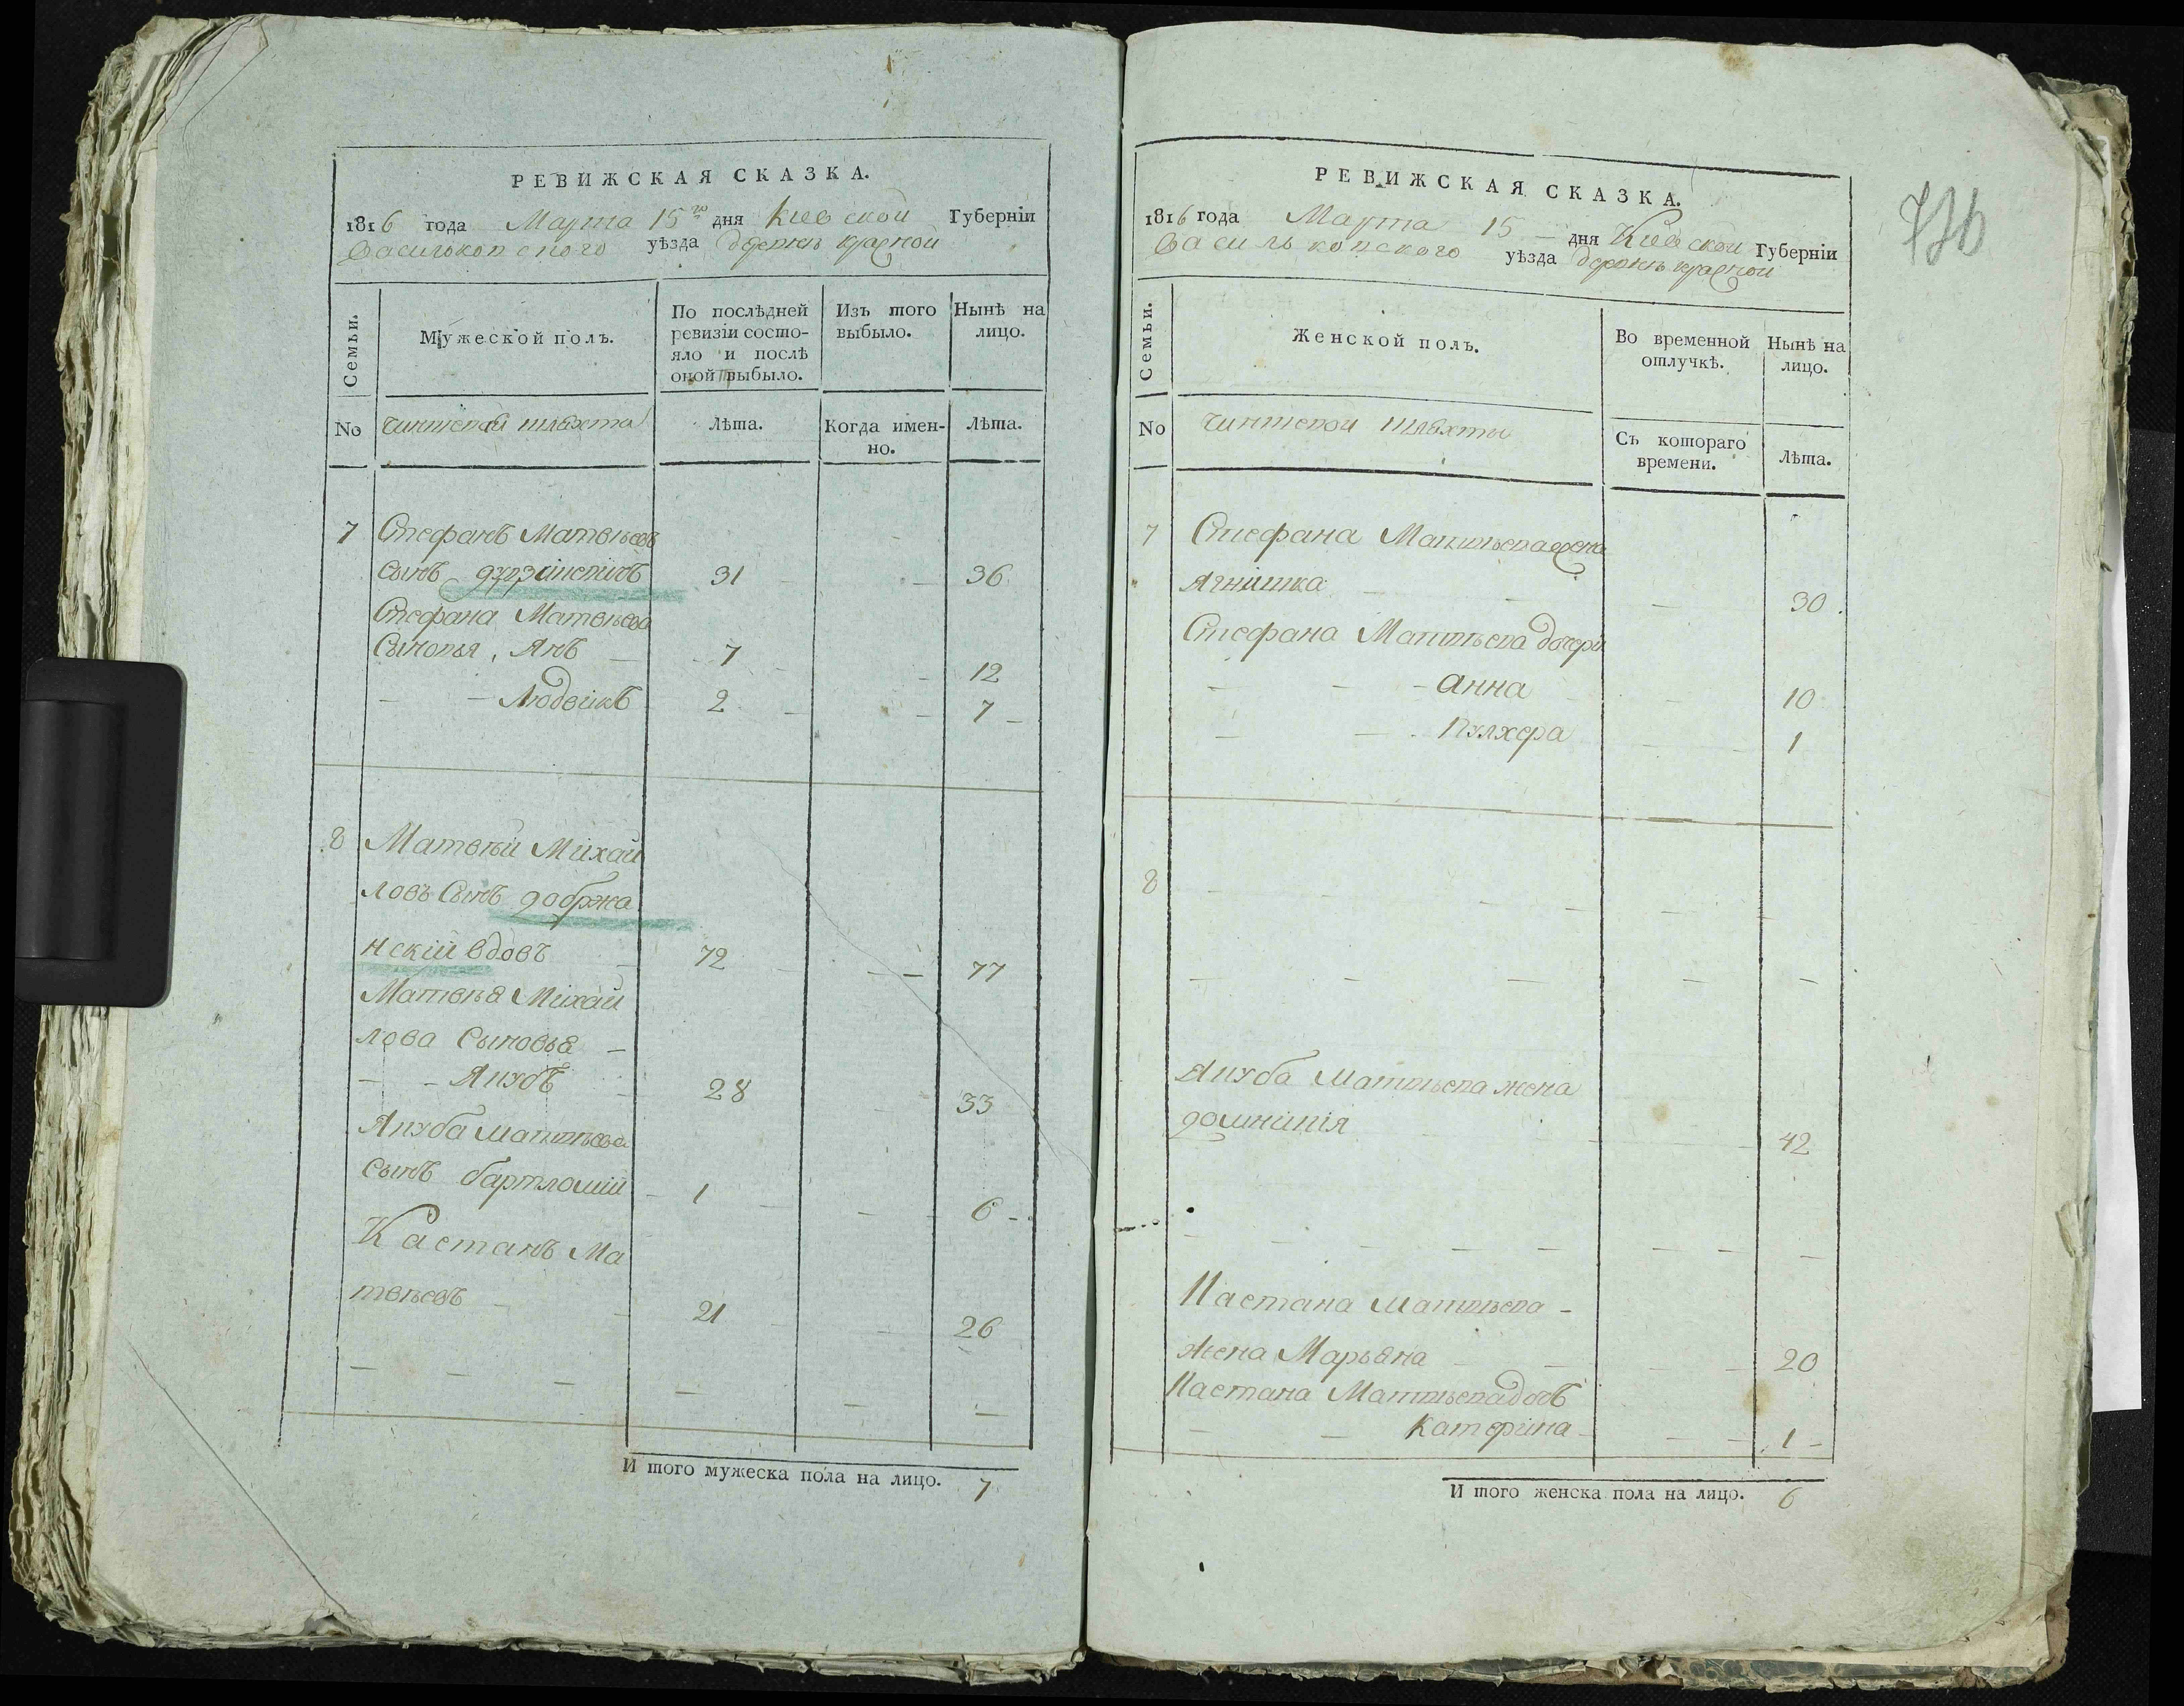 РЕВИЖСКАЯ СКАЗКА.
1816 года Марта 15го дня Киевской Губерніи
Васильковского уѣзда деревнѣ красной
Семьи.
Мужеской полъ.
По послѣдней ревизіи состояло и послѣ оной выбыло.
Изъ того выбыло.
Нынѣ на лицо.
No
Чиншевой шляхты
Лѣта.
Когда именно.
Лѣта.
7 Стефанъ Матвѣевъ
сынъ 31 36
Стефана Матвѣева
Сыновья, Янъ 7 12
Людвикъ 2 7
8 Матвѣй Михай
ловъ Сынъ добржа
нский вдовъ 72 77
Матвѣя Михай
лова Сыновья
Якубъ 28 33
Якуба Матвѣева
сынъ бартломій 1 6
Каетанъ Ма
твѣевъ 21 26
И того мужеска пола на лицо. 7
776
РЕВИЖСКАЯ СКАЗКА.
1816 года Марта 15 дня Киевской Губерніи
Васильковского уѣзда деревнѣ красной
Семьи.
Женской полъ.
Во временной отлучкѣ.
Нынѣ на лицо.
No
Чиншевой Шляхты
Съ котораго времени.
Лѣта.
7 Стефана Матвѣева жена
Ягнишка 30
Стефана Матвѣева дочери
анна 10
Пулхера 1
8
Якуба Матвѣева жена
доминикія 42
Каетана Матвѣева
жена Марьяна 20
Каетана Матвѣева дочь
Катерина 1
И того женска пола на лицо. 6